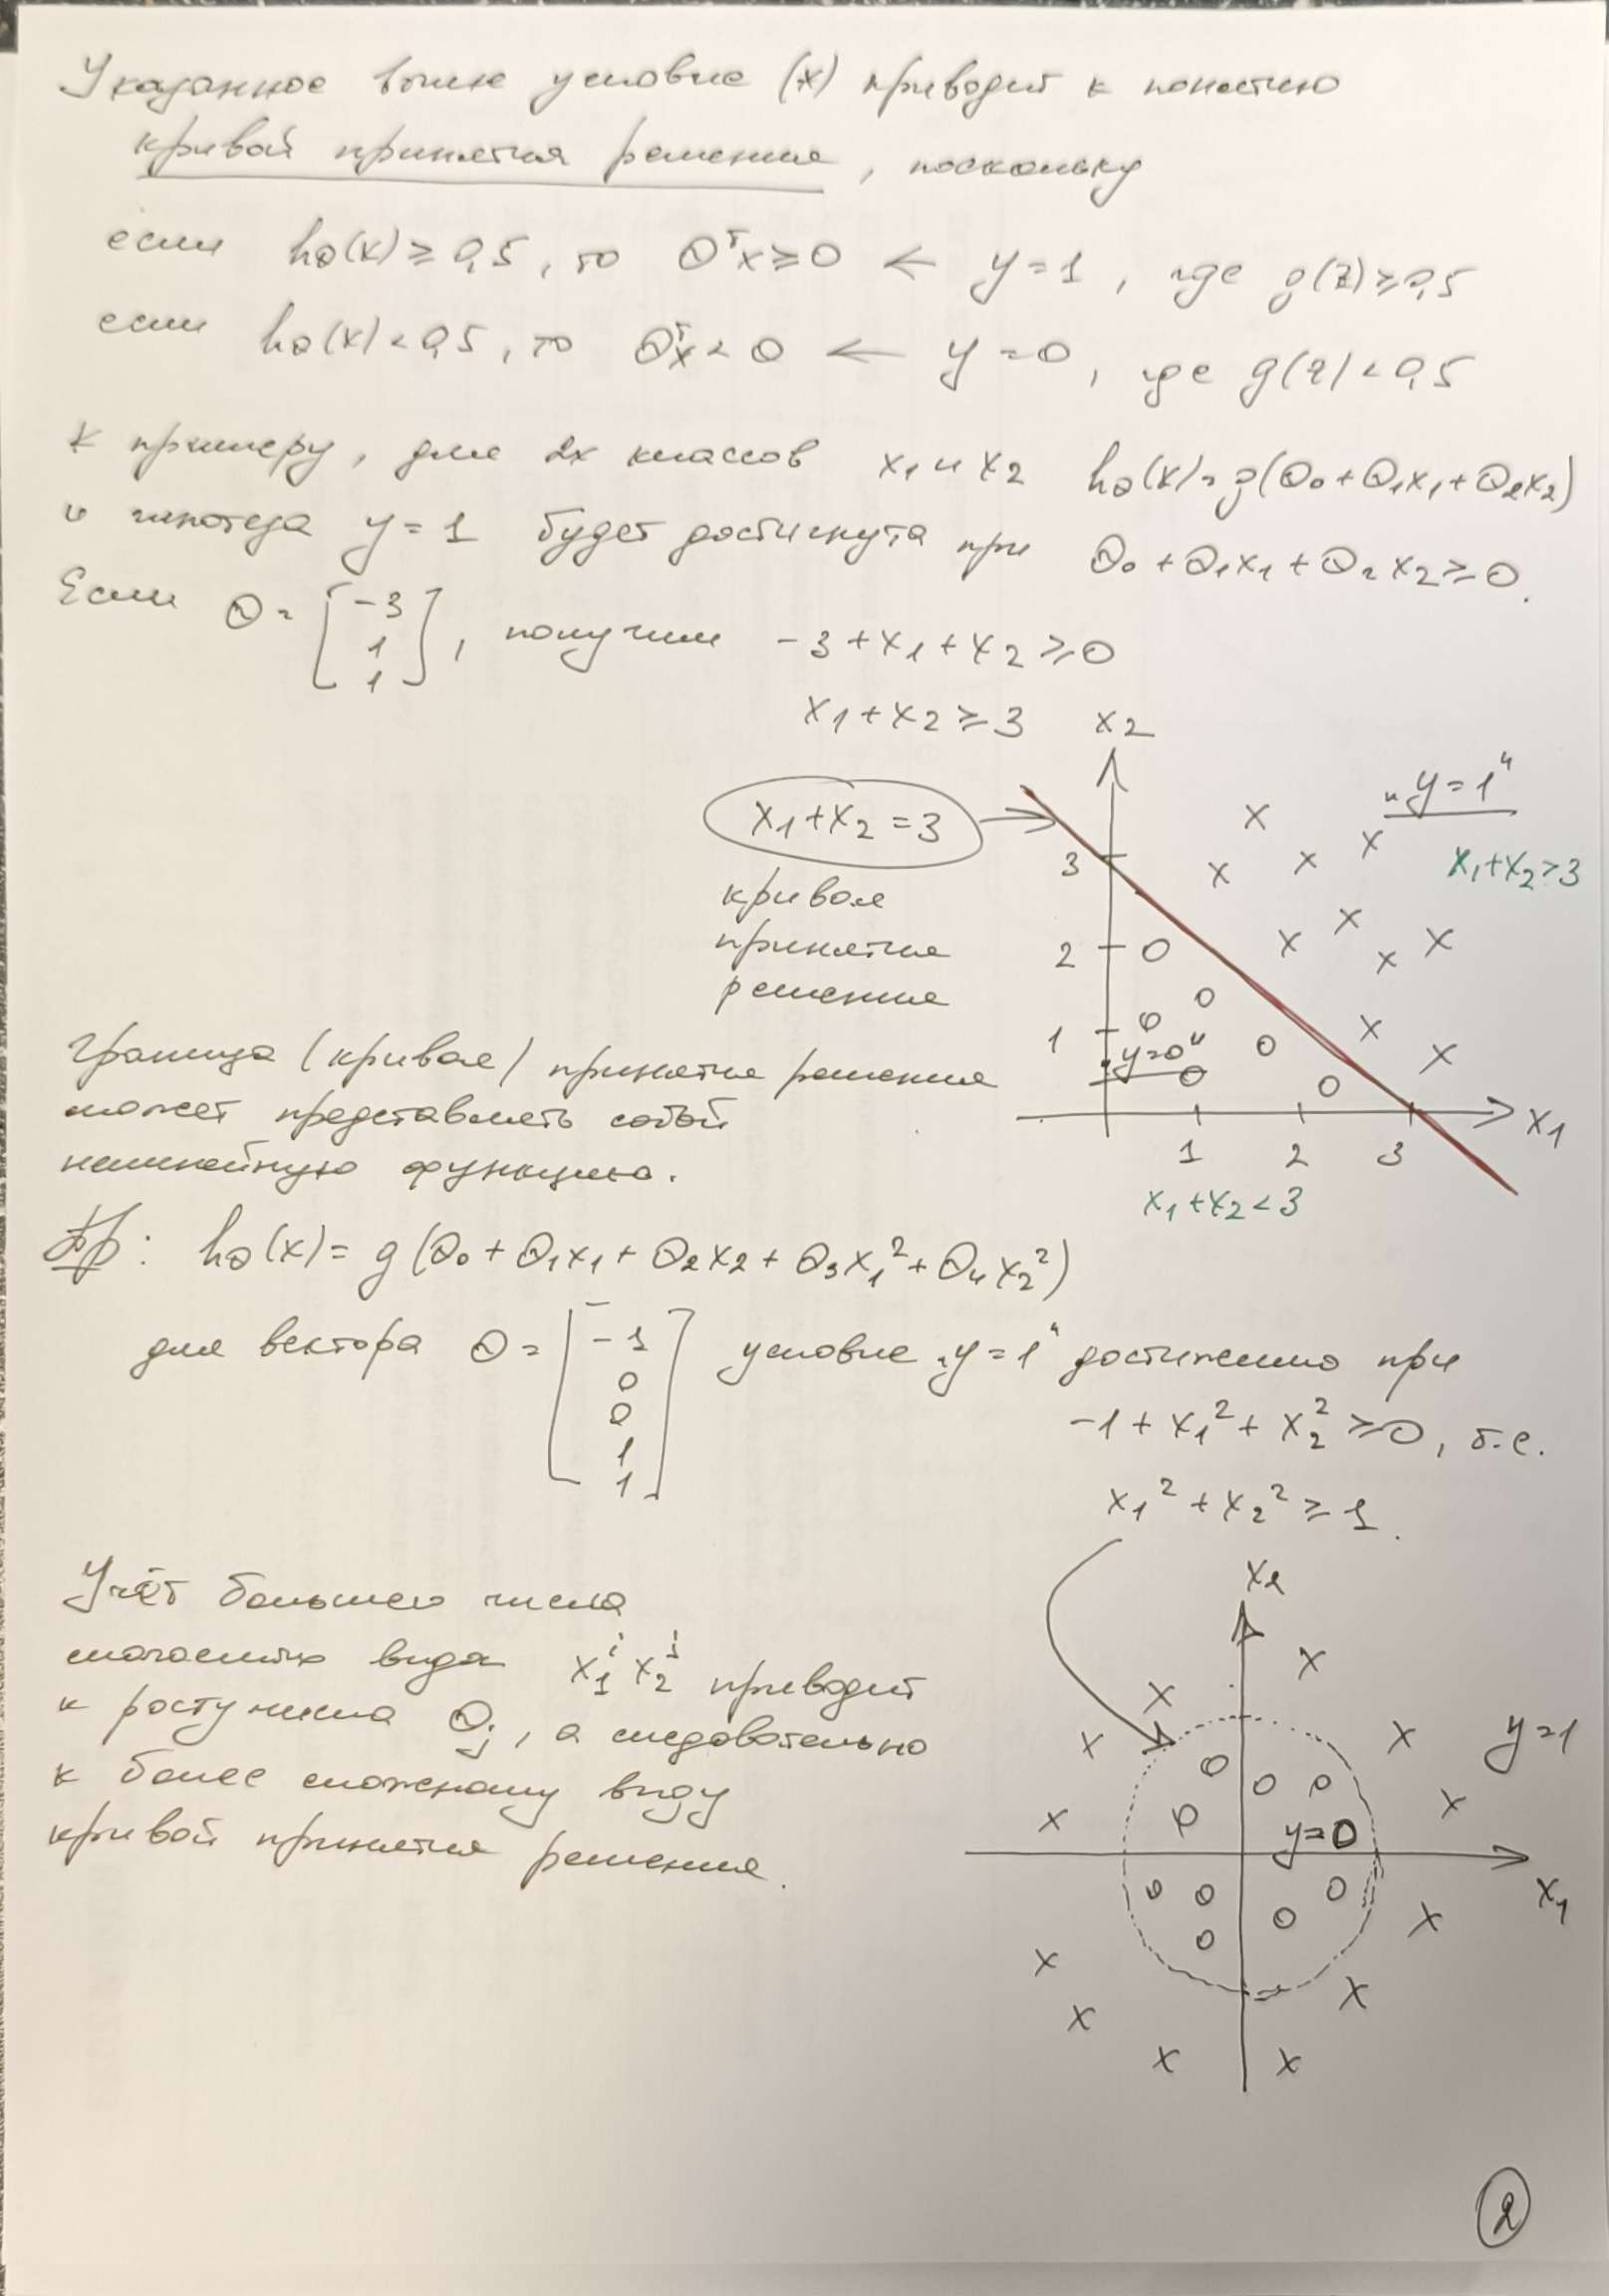 Указанное выше условие (*) приводит к понятию
кривой принятия решения, поскольку
если hθ(x) ≥ 0,5, то θᵀx ≥ 0 ← y = 1, где g(z) ≥ 0,5
если hθ(x) < 0,5, то θᵀx < 0 ← y = 0, где g(z) < 0,5
К примеру, для 2х классов x₁ и x₂ hθ(x) = g(θ₀ + θ₁x₁ + θ₂x₂)
и гипотеза y = 1 будет достигнута при θ₀ + θ₁x₁ + θ₂x₂ ≥ 0.
Если θ = [-3 1 1], получим -3 + x₁ + x₂ ≥ 0
x₁ + x₂ ≥ 3
x₂
x₁ + x₂ = 3
„y = 1"
x₁ + x₂ > 3
3
кривая
принятия
2
решения
1
„y=0"
x₁
1 2 3
x₁ + x₂ < 3
Граница (кривая) принятия решения
может представлять собой
нелинейную функцию.
Пр: hθ(x) = g(θ₀ + θ₁x₁ + θ₂x₂ + θ₃x₁² + θ₄x₂²)
для вектора θ = [-1 0 0 1 1] условие „y = 1" достижимо при
-1 + x₁² + x₂² ≥ 0, т.е.
x₁² + x₂² ≥ 1.
Учёт большего числа
слагаемых вида x₁ⁱ x₂ʲ приводит
к росту числа θⱼ, а следовательно
к более сложному виду
кривой принятия решения.
x₂
y=1
y=0
x₁
2